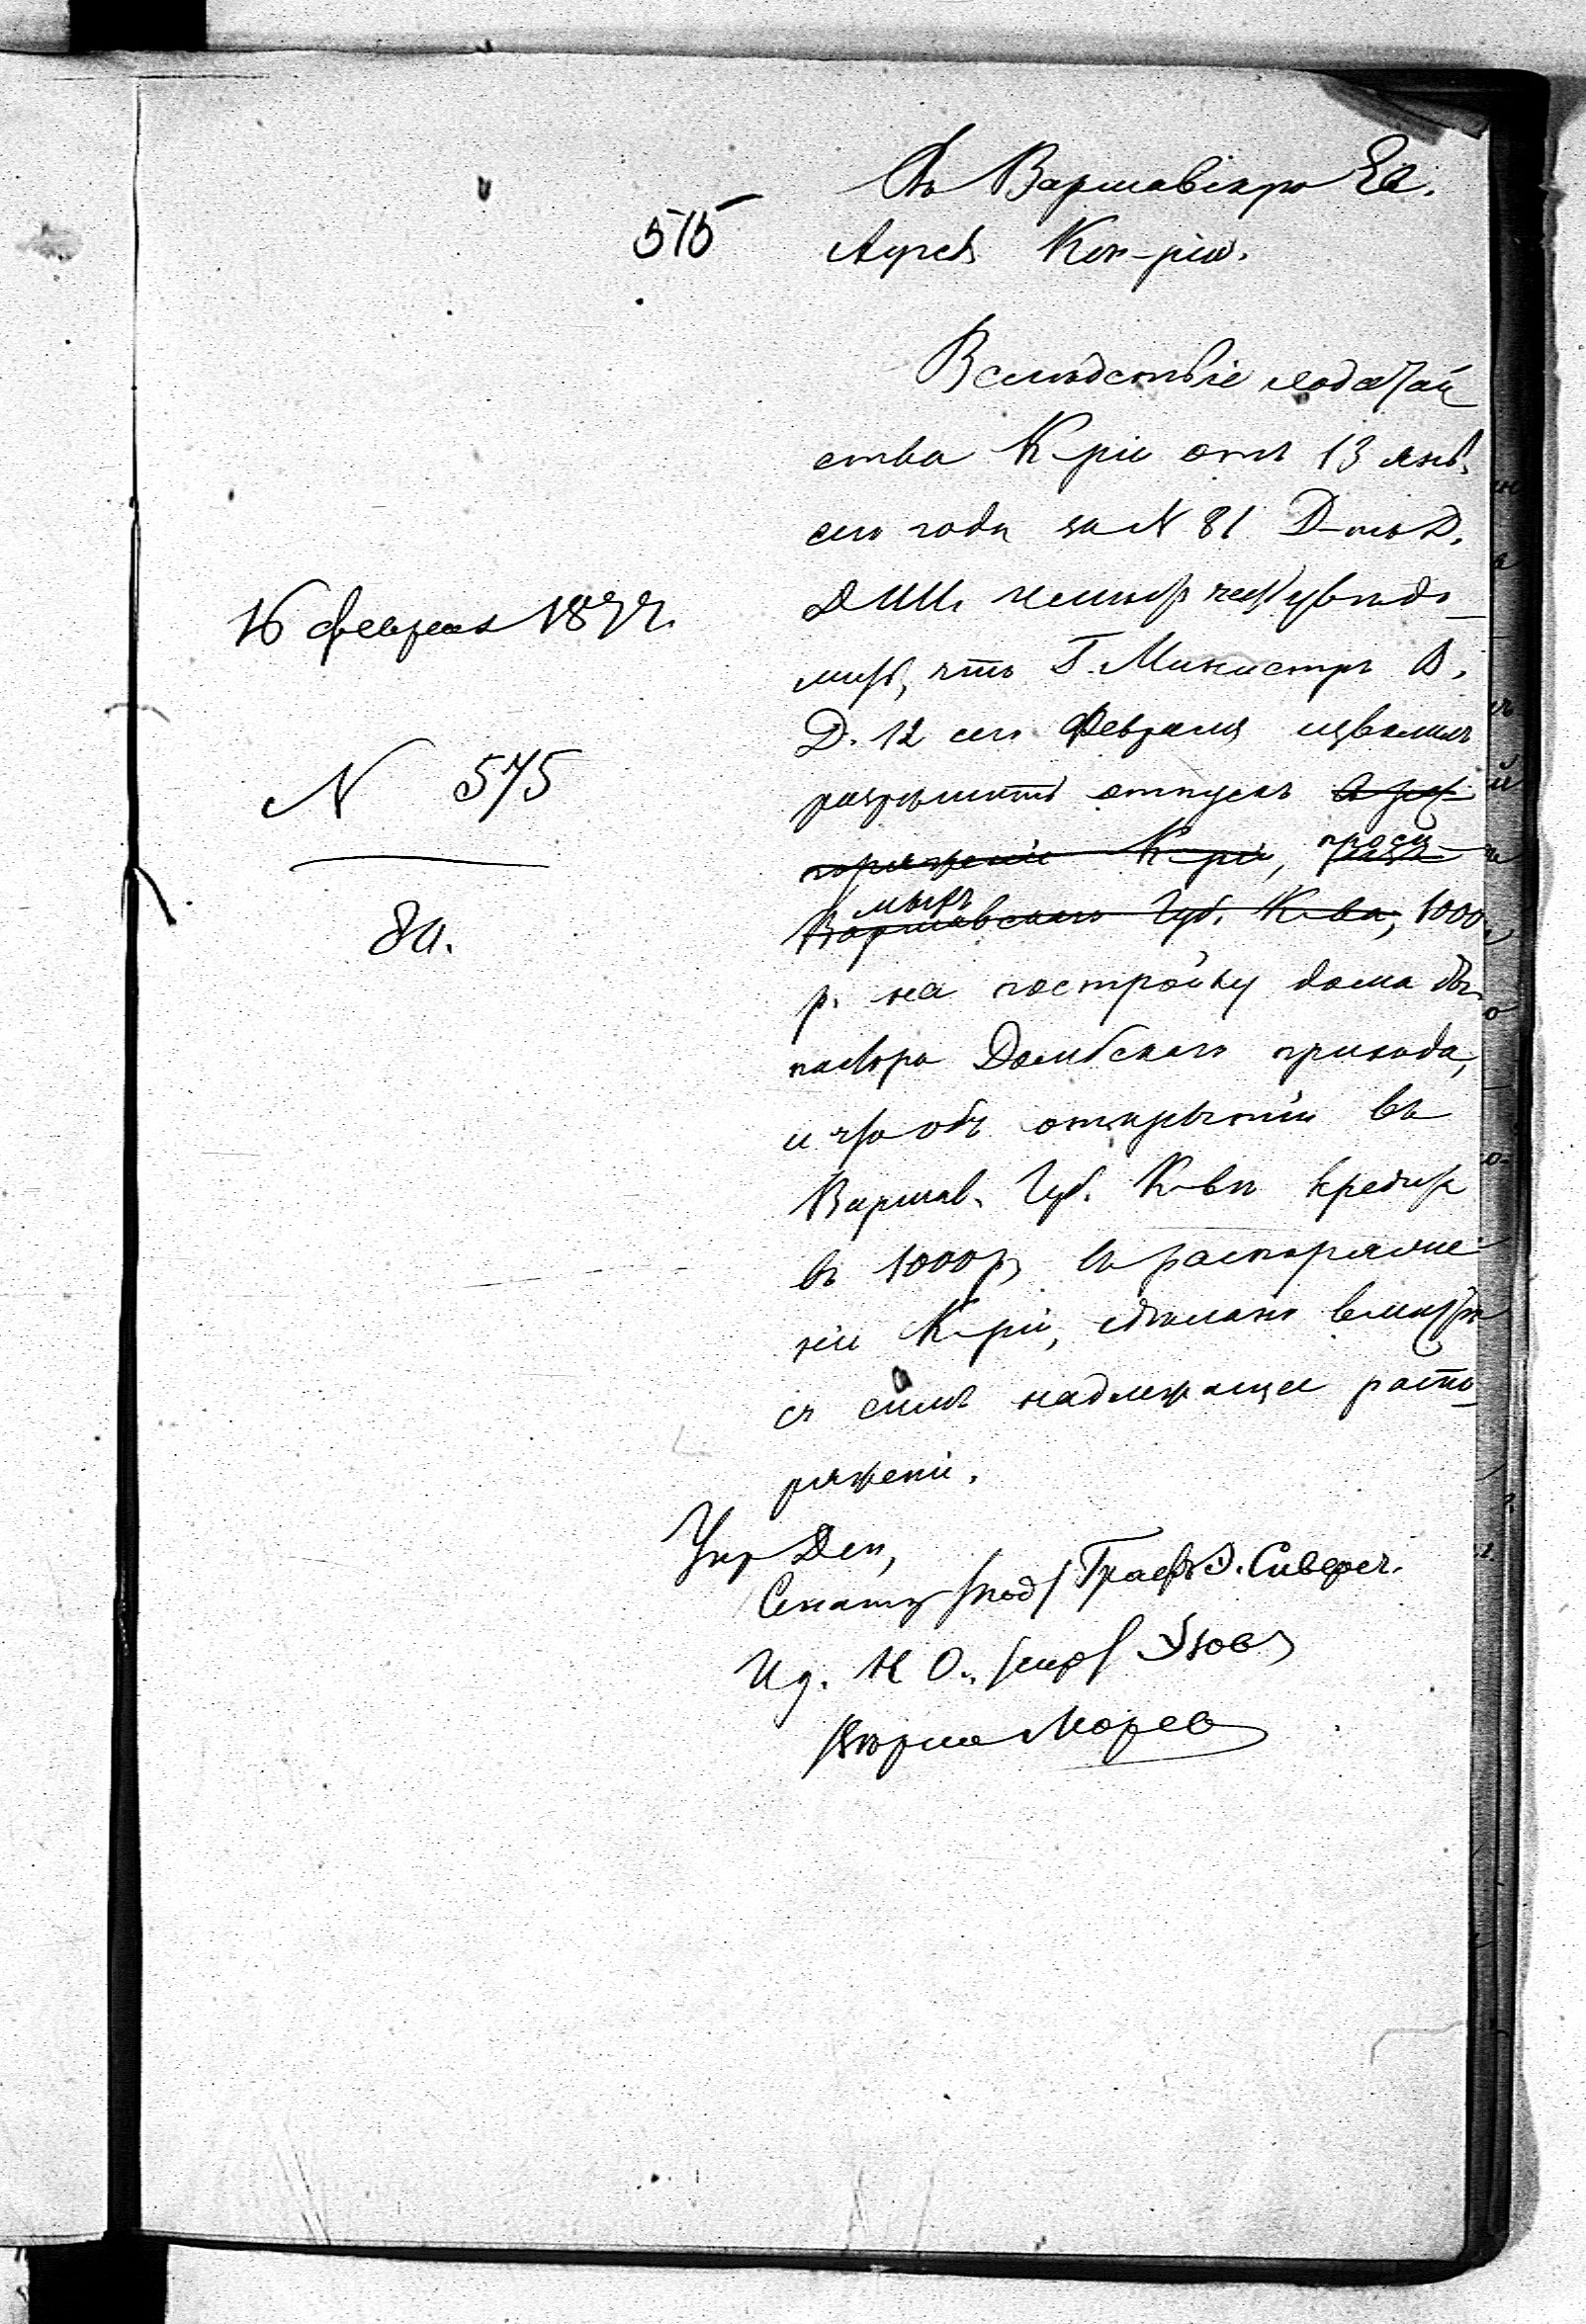 Въ Варшавскую Ев.
575
Аугсб. Кон-рію.
Вслѣдствіе ходатай
ства К-ріи отъ 13 янв.
сего года за № 81 Д-тъ Д.
Д. И. И. имѣетъ честь увѣдо-
мить, что Г. Министръ В.
Д. 12 сего Февраля изволилъ
разрѣшить отпускъ въ рас-
поряженіе К-ріи, проси-
мыхъ
Варшавскаго Губ. К-ва, 1000
р. на постройку дома для
пастора Домбскаго прихода,
и что объ открытіи въ
Варшав. Губ. К-вѣ кредита
въ 1000 р. въ распоряже-
ніи К-ріи, сдѣлано вмѣстѣ
съ симъ надлежащее распо-
ряженіе.
16 февраля 1877 г.
N 575
80.
Упр. Деп,
Сенаторъ /под/ Графъ Э. Сиверсъ.
Ид. Н О. /скр/
Вѣрно Моревъ